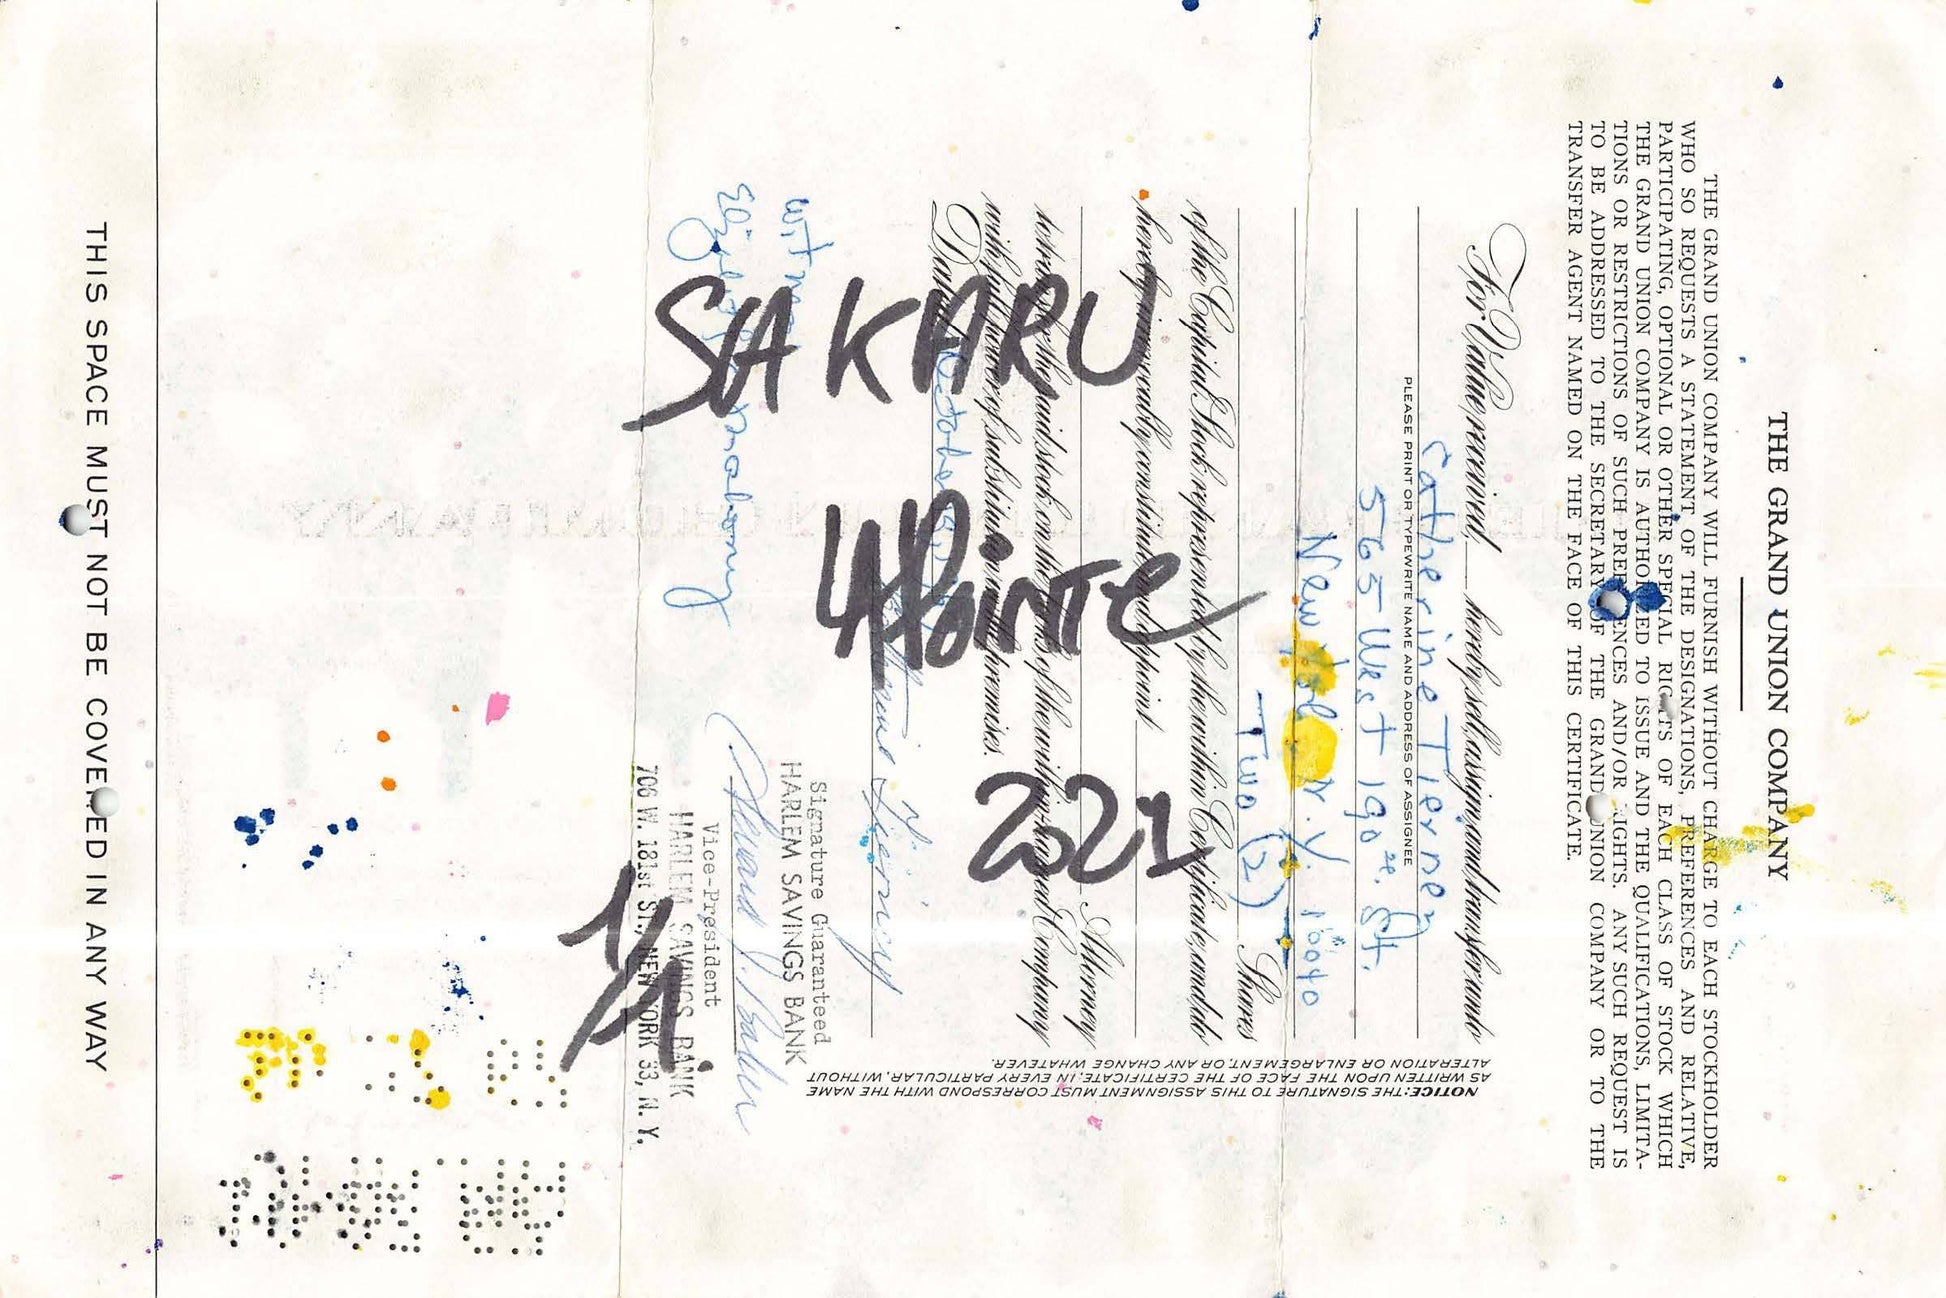 THE GRAND UNION COMPANY
THE GRAND UNION COMPANY WILL FURNISH WITHOUT CHARGE TO EACH STOCKHOLDER
WHO SO REQUESTS A STATEMENT OF THE DESIGNATIONS, PREFERENCES AND RELATIVE,
PARTICIPATING, OPTIONAL OR OTHER SPECIAL RIGHTS OF EACH CLASS OF STOCK WHICH
THE GRAND UNION COMPANY IS AUTHORIZED TO ISSUE AND THE QUALIFICATIONS, LIMITA-
TIONS OR RESTRICTIONS OF SUCH PREFERENCES AND/OR RIGHTS. ANY SUCH REQUEST IS
TO BE ADDRESSED TO THE SECRETARY OF THE GRAND UNION COMPANY OR TO THE
TRANSFER AGENT NAMED ON THE FACE OF THIS CERTIFICATE.
For Value received, hereby sell, assign and transfer unto
Catherine Tierney
PLEASE PRINT OR TYPEWRITE NAME AND ADDRESS OF ASSIGNEE
565 West 190 St.
New York N.Y. 10040
Two (2) Shares
of the Capital Stock represented by the within Certificate, and do
hereby irrevocably constitute and appoint
Attorney
to transfer the said stock on the books of the within-named Company
with full power of substitution in the premises.
Dated October
Signature Guaranteed
HARLEM SAVINGS BANK
Vice-President
HARLEM SAVINGS BANK
706 W. 181st ST., NEW YORK 33, N. Y.
NOTICE: THE SIGNATURE TO THIS ASSIGNMENT MUST CORRESPOND WITH THE NAME
AS WRITTEN UPON THE FACE OF THE CERTIFICATE, IN EVERY PARTICULAR, WITHOUT
ALTERATION OR ENLARGEMENT, OR ANY CHANGE WHATEVER.
THIS SPACE MUST NOT BE COVERED IN ANY WAY
SAKARU
LAPOINTE
2021
1/1.